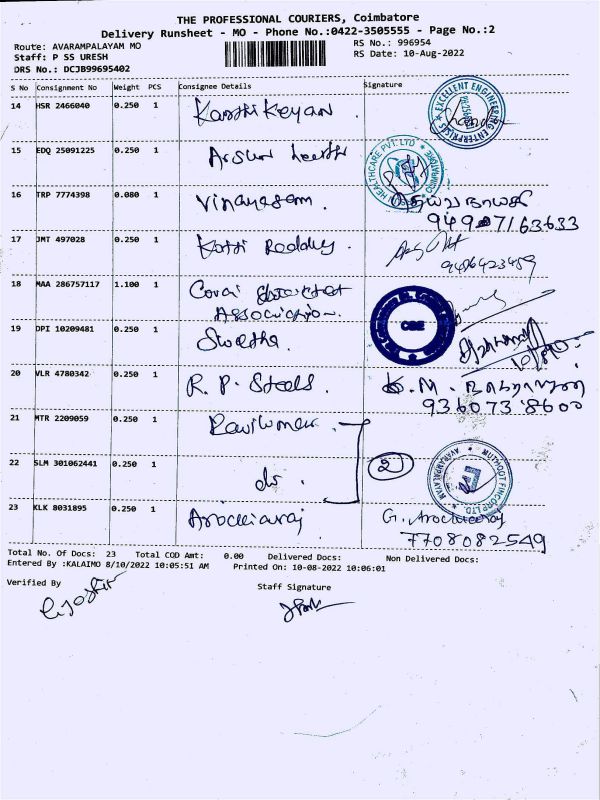 THE PROFESSIONAL COURIERS, Coimbatore
Delivery Runsheet - MO - Phone No.:0422-3505555 - Page No.:2
Route: AVARAMPALAYAM MO
RS No.: 996954
Staff: P SS URESH
RS Date: 10-Aug-2022
DRS No.: DCJB99695402
S No Consignment No Weight PCS Consignee Details Signature
14 HSR 2466040 0.250 1 Karthikeyan
EXCELLENT ENGINEERING ENTERPRISES
15 EDQ 25091225 0.250 1
HEALTHCARE PVT. LTD
16 TRP 7774398 0.080 1 Vinayagam.
94907163633
17 JMT 497028 0.250 1 Reddy.
9486423489
18 MAA 286757117 1.100 1 Covai
Association.
CBE
19 DPI 10209481 0.250 1 Swetha.
20 VLR 4780342 0.250 1 R. P. Steels. K. M.
936073 8600
21 MTR 2209059 0.250 1
22 SLM 301062441 0.250 1 do. 2
MUTHOOT FINCORP LTD. AVARAMPALAYAM
23 KLK 8031895 0.250 1 Arockiaraj G. Arockiaraj
7708082549
Total No. Of Docs: 23 Total COD Amt: 0.00 Delivered Docs: Non Delivered Docs:
Entered By :KALAIMO 8/10/2022 10:05:51 AM Printed On: 10-08-2022 10:06:01
Verified By Staff Signature